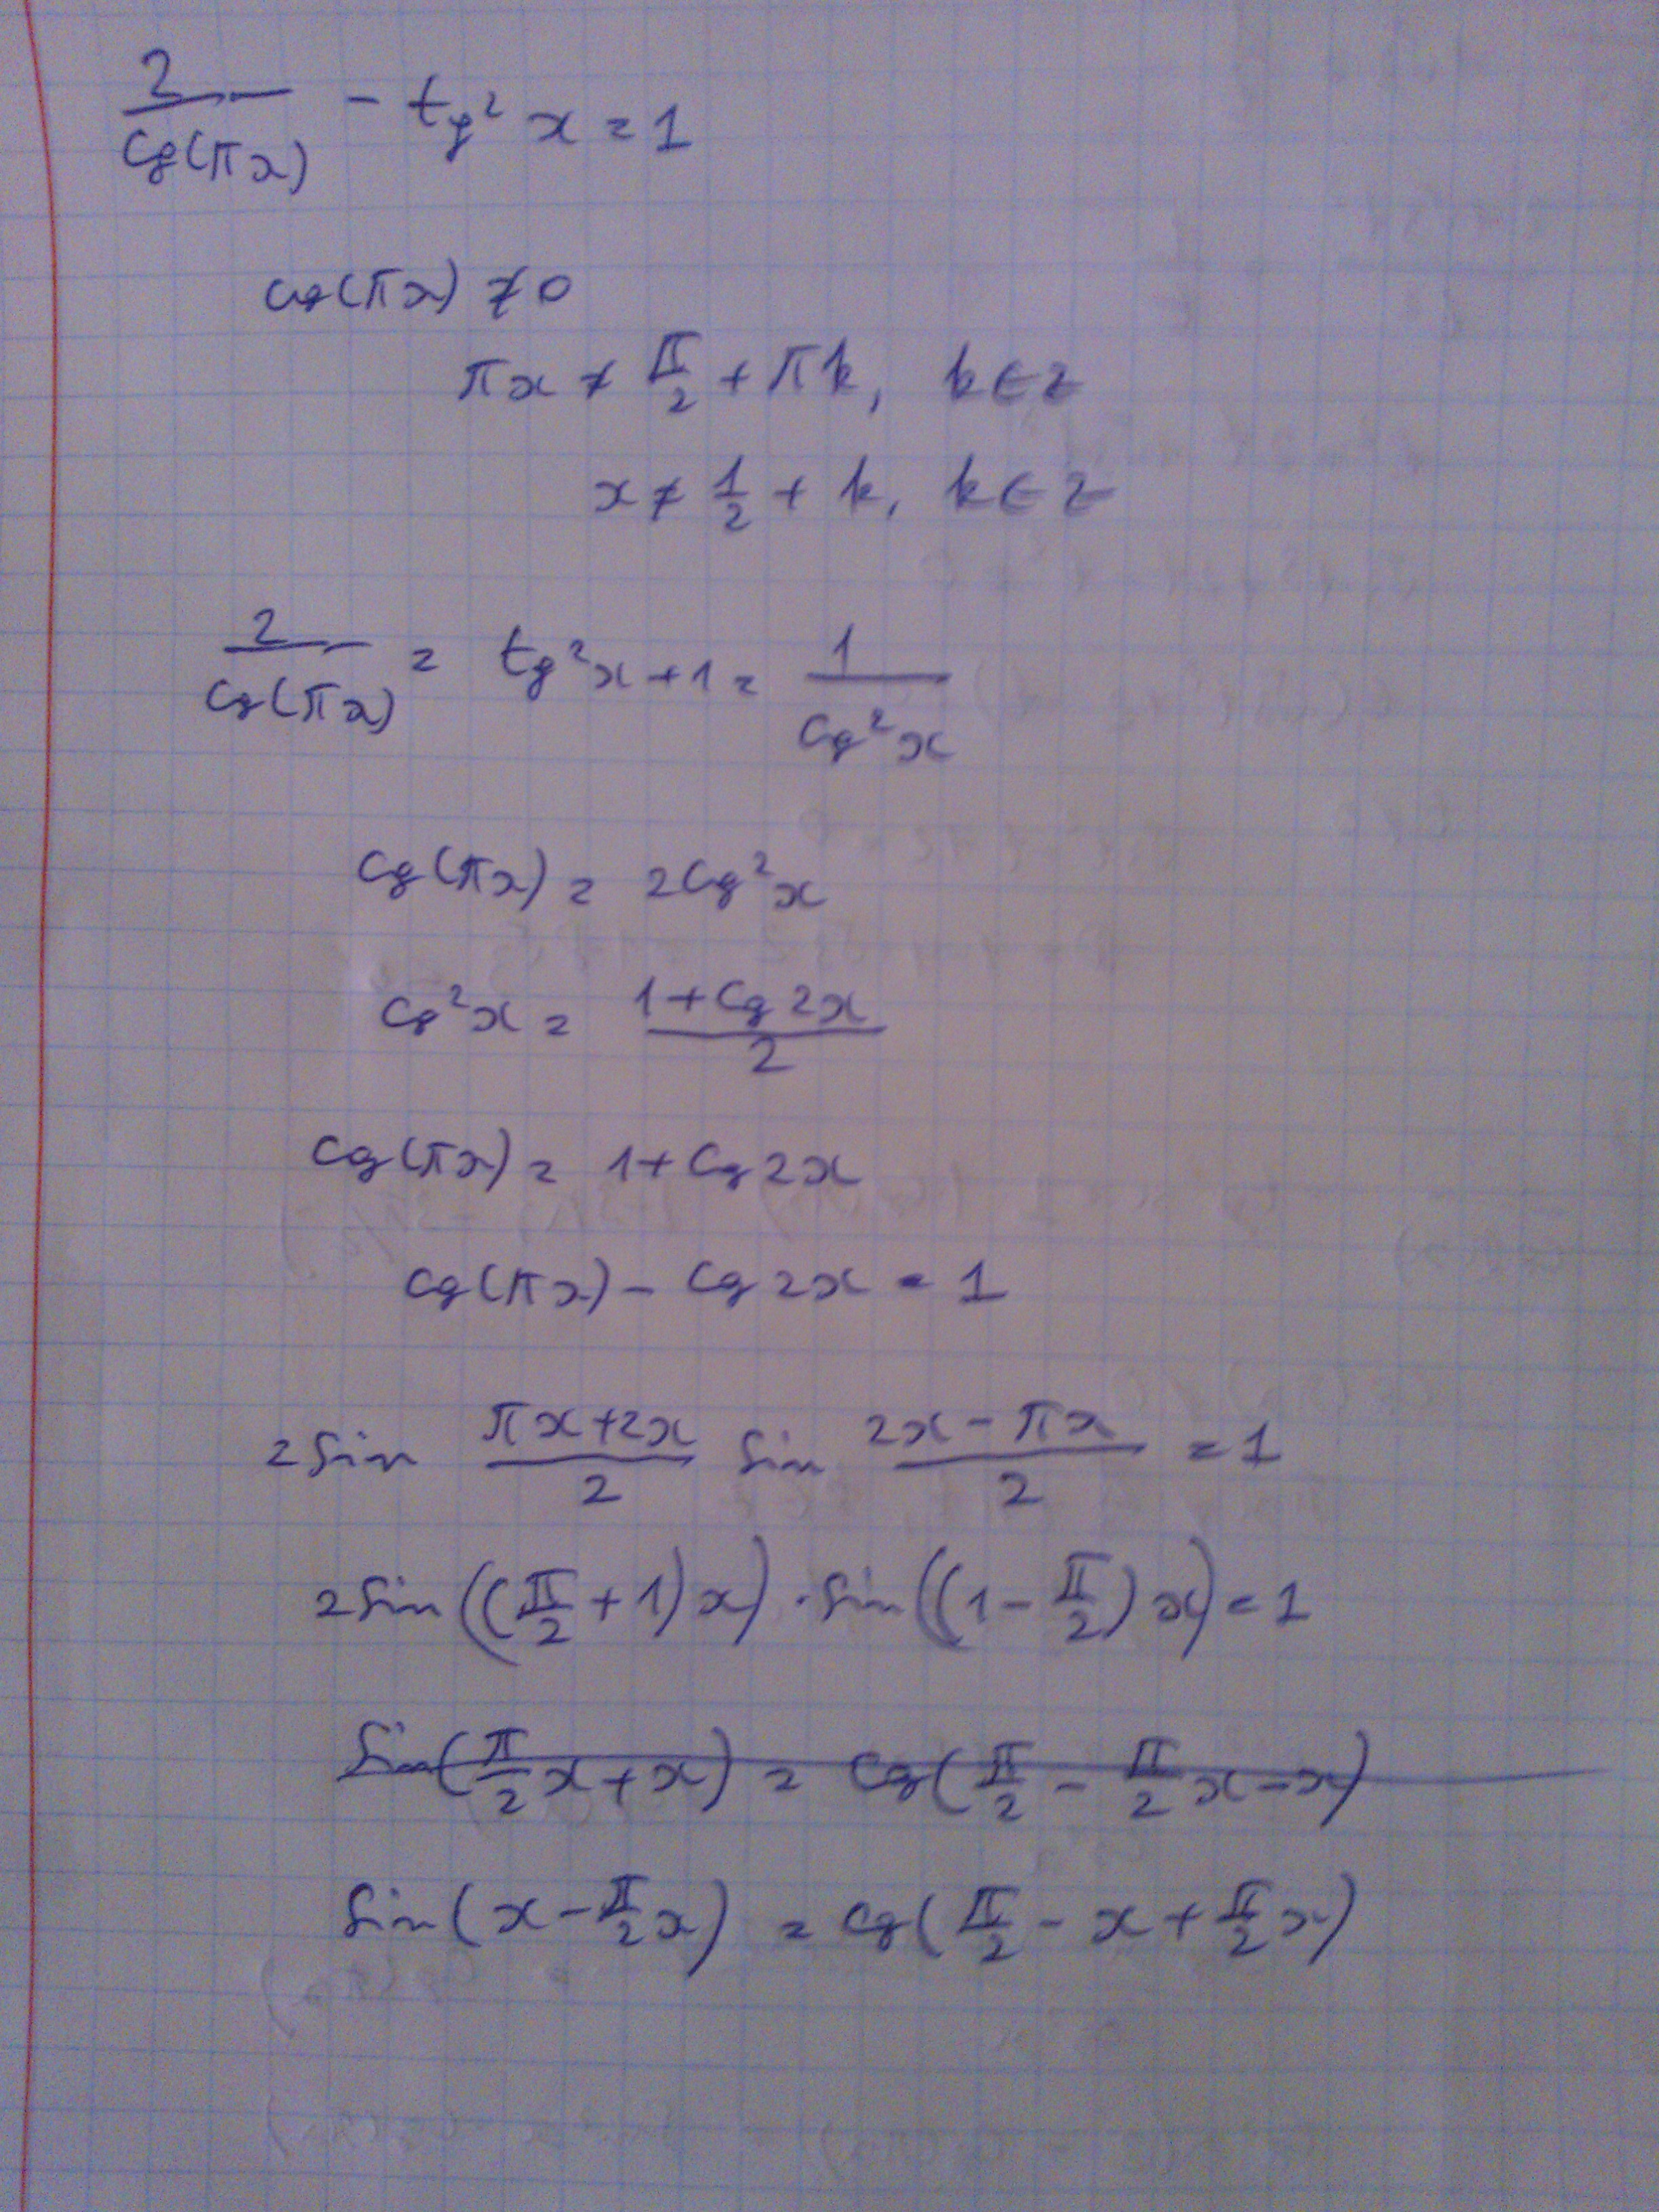 2/cos(πx) - tg² x = 1
cos(πx) ≠ 0
πx ≠ π/2 + πk, k ∈ z
x ≠ 1/2 + k, k ∈ z
2/cos(πx) = tg²x + 1 = 1/cos²x
cos(πx) = 2cos²x
cos²x = (1 + cos 2x)/2
cos(πx) = 1 + cos 2x
cos(πx) - cos 2x = 1
2 sin (πx + 2x)/2 sin (2x - πx)/2 = 1
2 sin((π/2 + 1)x) · sin((1 - π/2)x) = 1
sin(π/2 x + x) = cos(π/2 - π/2 x - x)
sin(x - π/2 x) = cos(π/2 - x + π/2 x)